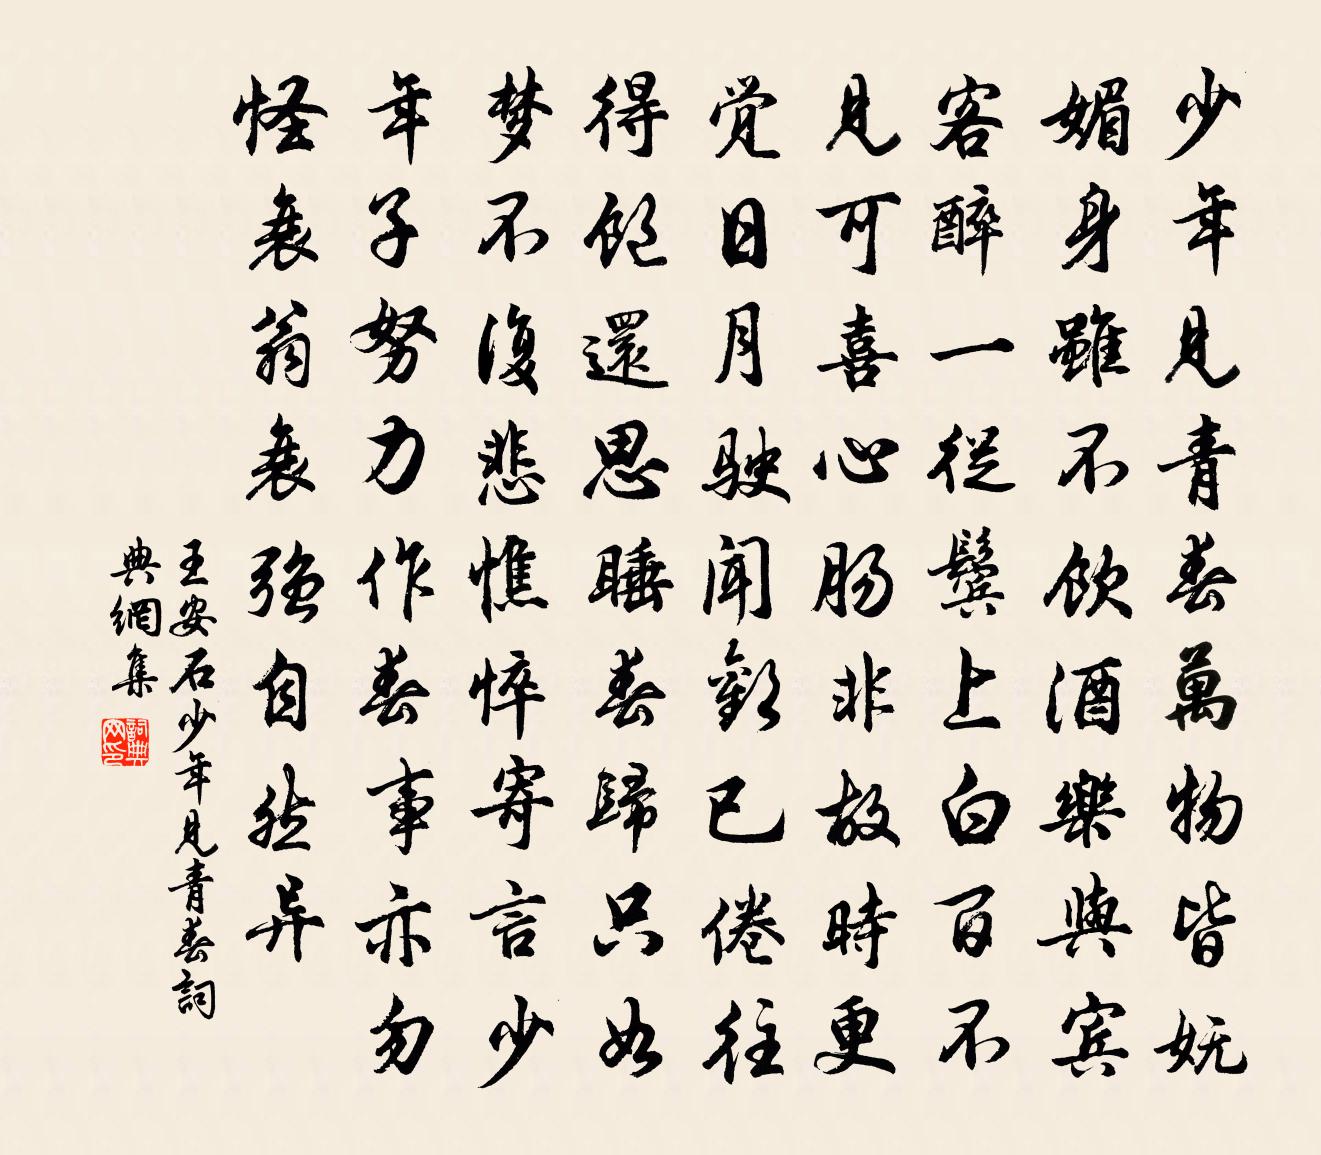 少年見青春萬物皆妩
媚身雖不飲酒樂與宾
客醉一從鬓上白百不
見可喜心肠非故時更
觉日月駛闻歡已倦往
得饱還思睡春歸只如
梦不復悲憔悴寄言少
年子努力作春事亦勿
怪衰翁衰强自然异
王安石少年見青春詞
典網集
詞典
网印